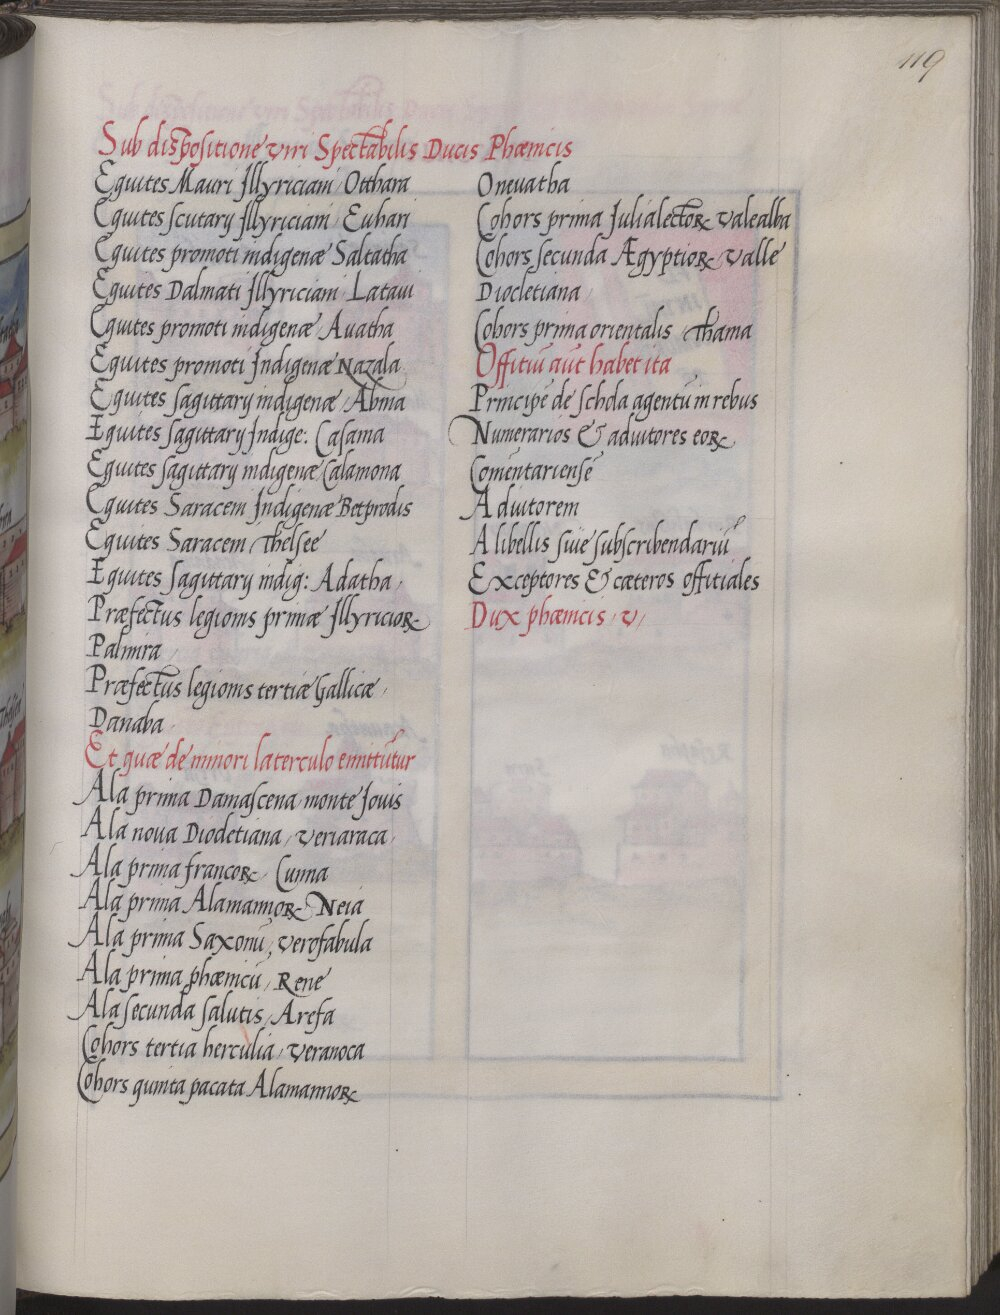 119
Sub dispositione viri Spectabilis Ducis Phœnicis
Equites Mauri Illyriciani Otthara
Equites scutarij Illyriciani Euhari
Equites promoti indigenæ Saltatha
Equites Dalmati Illyriciani Lataui
Equites promoti indigenæ Auatha
Equites promoti Indigenæ Nazala
Equites sagittarij indigenæ Abina
Equites sagittarij Indige: Casama
Equites sagittarij indigenæ Calamona
Equites Saraceni Indigenæ Betprodis
Equites Saraceni Thelsee
Equites sagittarij indig: Adatha
Præfectus legionis primæ Illyricioꝝ
Palmira
Præfectus legionis tertiæ Gallicæ
Danaba
Et quæ de minori laterculo emittūtur
Ala prima Damascena monte Iouis
Ala noua Diocletiana, veriaraca
Ala prima francoꝝ Cunna
Ala prima Alamannoꝝ Neia
Ala prima Saxonū, verofabula
Ala prima phœnicū, Rene
Ala secunda salutis, Arefa
Cohors tertia herculia, veranoca
Cohors quinta pacata Alamannoꝝ
Oneuatha
Cohors prima Iulialectoꝝ valealba
Cohors secunda Ægyptioꝝ valle
Diocletiana
Cohors prima orientalis Thama
Offitiū aūt habet ita
Principē de schda agentū in rebus
Numerarios & adiutores eoꝝ
Comentariensē
Adiutorem
A libellis siue subscribendariū
Exceptores & cæteros offitiales
Dux phœnicis v